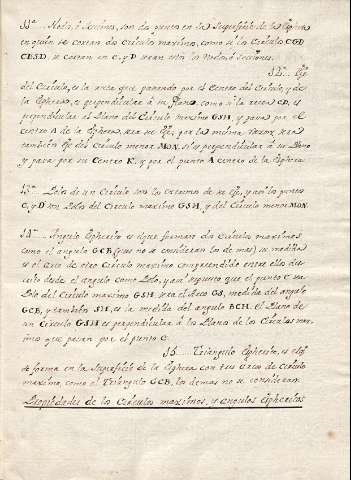 11ª.. Nodo, ó Sección, son dos puntos en la Superficie de la Esphera
en quien se cortan dos Circulos maximos, como si los Circulos CGD
CBSD. se cortan en C, y D seran estos los Nodos, ó Secciones.
12ª.. Eje
del Circulo, es la recta que pasando por el Centro del Circulo, y de
la Esphera, es perpendicular à su Plano, como si la recta CD, es
perpendicular al Plano del Circulo maximo GSH, y pasa por el
Centro A de la Esphera sera su Eje, por la misma razon sera
tambien Eje del Circulo menor MON. si es perpendicular à su Plano
y pasa por su Centro K, y por el punto A Centro de la Esphera
13ª.. Polos de un Circulo son los extremos de su Eje, y asi los puntos
C, y D son Polos del Circulo maximo GSH, y del Circulo menor MON.
14ª.. Angulo Espherico es el que forman dos Circulos maximos
como el angulo GCB (pues no se consideran los de mas) su medida
es el Arco de otro Circulo maximo comprendido entre ellos des-
crito desde el angulo como Polo, y asi supuesto que el punto C sea
Polo del Circulo maximo GSH sera el Arco GS, medida del angulo
GCB, y tambien SH, es la medida del angulo BCH. el Plano de
un Circulo GSH es perpendicular à los Planos de los Circulos maxi-
mos que pasan por el punto C.
15.. Triangulo Espherico, es el q.
se forma en la Superficie de la Esphera con tres arcos de Circulo
maximo, como el Triangulo GCB, los demas no se consideran
Propiedades de los Circulos maximos, y angulos Esphericos